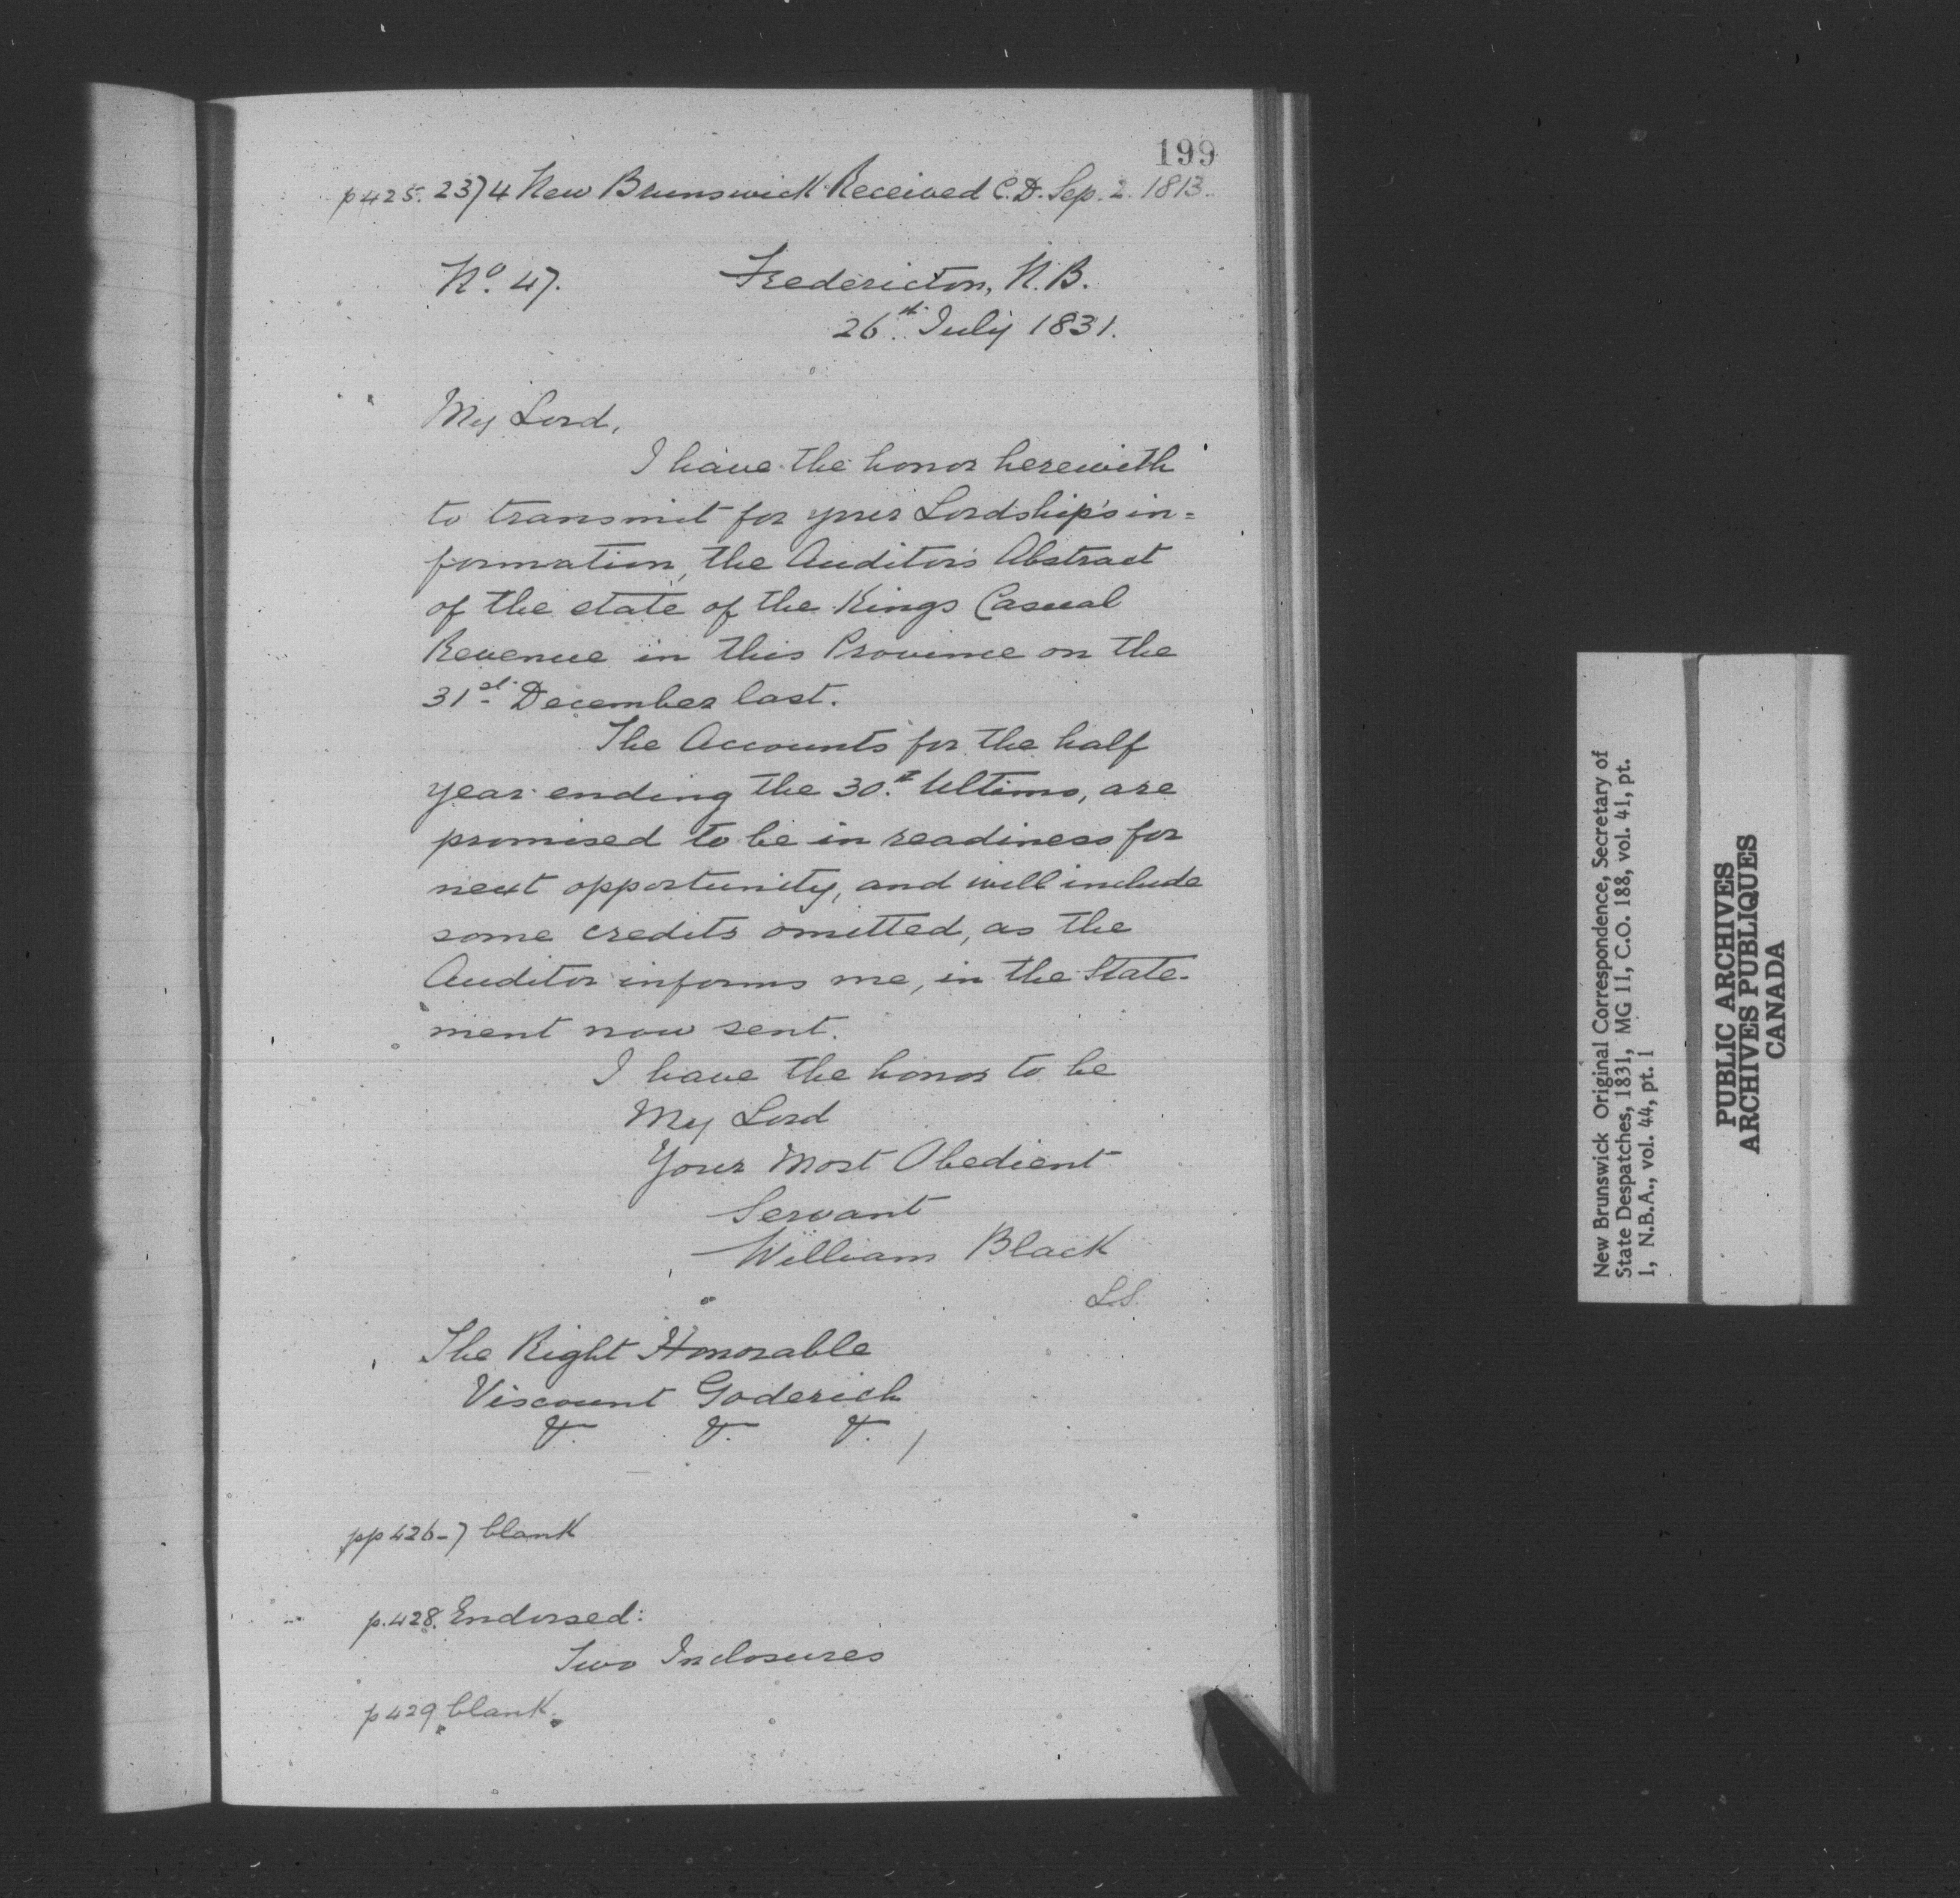 199
p425. 2374 New Brunswick Received C.D. Sep. 2. 1813.
No. 47. Fredericton, N.B.
26th July 1831.
My Lord,
I have the honor herewith
to transmit for your Lordship's in=
formation, the Auditor's Abstract
of the state of the Kings Casual
Revenue in this Province on the
31st December last.
The Accounts for the half
year ending the 30th Ultimo, are
promised to be in readiness for
next opportunity, and will include
some credits omitted, as the
Auditor informs me, in the State-
ment now sent.
I have the honor to be
My Lord
Your Most Obedient
Servant
William Black
L.S.
The Right Honorable
Viscount Goderich
&. &. &. /
pp 426-7 blank
p.428. Endorsed:
Two Inclosures
p429 blank.
New Brunswick Original Correspondence, Secretary of
State Despatches, 1831, MG 11, C.O. 188, vol. 41, pt.
1, N.B.A., vol. 44, pt. 1
PUBLIC ARCHIVES
ARCHIVES PUBLIQUES
CANADA